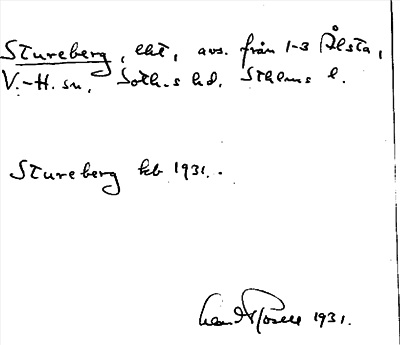 Stureberg, lht, avs. från 1-3 Ålsta,
V.-H. sn, Soth-s hd, Sthlms l.
Stureberg kb 1931.
1931.